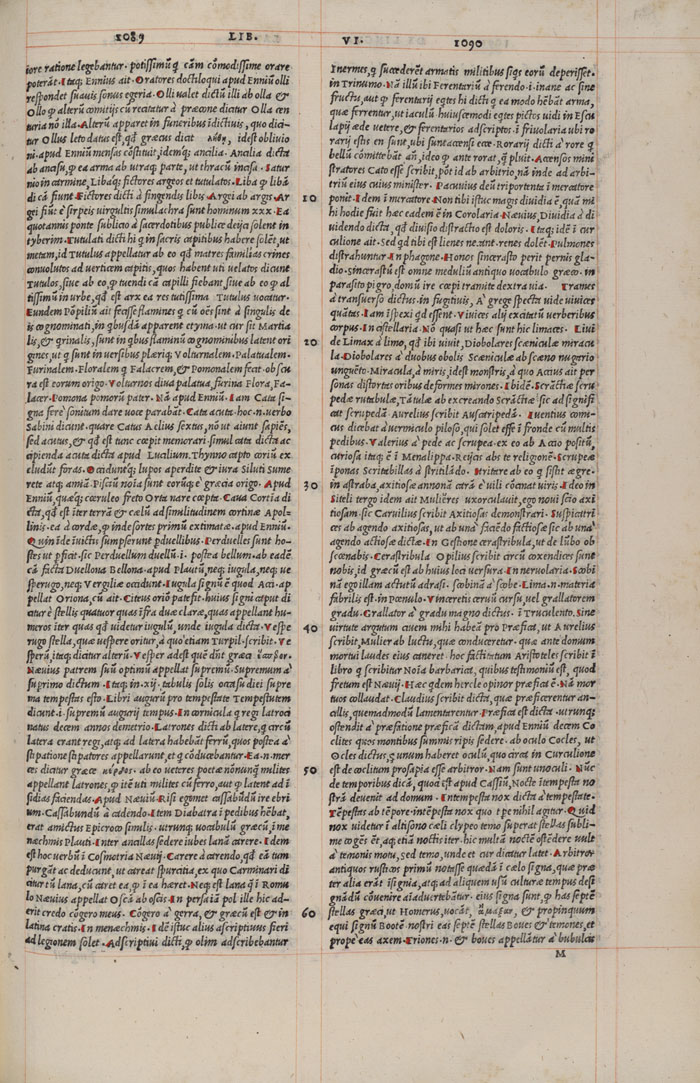 1089 LIB.
iore ratione legebantur. potissimū q̄ cām cōmodissime orare
poterāt. Itaq; Ennius ait. Oratores doctiloqui apud Enniū olli
respondet suauis sonus egeria. Olli ualet dictū illi ab olla &
Ollo q̄ alterū comitijs cū recitatur à præcone dicitur Olla cen
turia nō illa. Alterū apparet in funeribus īdictiuis, quo dici-
tur Ollus leto datus est, qd græcus dicit λήθη, idest obliuio
ni apud Ennium mensas cōstituit, idemq; ancilia. Ancilia dicta
ab ancisu, q̄ ea arma ab utraq; parte, ut thracū incisa. Satur
nio in carmine, Libaq; fictores argeos et tutulatos. Liba q̄ libā
di cā fiunt. Fictores dicti à fingendis libis. Argei ab argis. Ar
gei fiūt è sirpeis uirgultis simulachra sunt hominum xxx. Ea
quotannis ponte sublicio à sacerdotibus publice deijci solent in
tyberim. Tutulati dicti hi q in sacris capitibus habere solēt, ut
metam, id Tutulus appellatur ab eo qd matres familias crines
conuolutos ad uerticem capitis, quos habent uti uelatos dicunt
Tutulos, siue ab eo, q̄ tuendi cā capilli fiebant, siue ab eo q̄ al
tissimū in urbe, qd est arx ea res tutissima Tutulus uocatur.
Eundem Pōpiliū ait fecisse flamines q cū oēs sint à singulis de
is cognominati, in qbusdā apparent etyma. ut cur sit Martia
lis, & qrinalis, sunt in qbus flaminū cognominibus latent ori
gines, ut q sunt in uersibus plæriq;. Volturnalem. Palatualem.
Furinalem. Floralem q̄ Falacrem, & Pomonalem fecit. obscu
ra est eorum origo. Volturnos diua palatua, furina Flora, Fa-
lacer. Pomona pomorū pater. Nā apud Enniū. Iam Cata si-
gna ferè sonitum dare uoce parabāt. Cata acuta. hoc. n. uerbo
Sabini dicunt. quare Catus Aelius sextus, nō ut aiunt sapiēs,
sed acutus, & qd est tunc cœpit memorari. simul cata dicta ac
cipienda acuta dicta apud Lucilium. Thynno capto coriū ex
cludūt foras. Occidunq; lupos aperdite & iura Siluti sume
rete atq; amiā. Pisciū noīa sunt eorūq; è græcia origo. Apud
Enniū, quæq; cœruleo freto Orta nare cœpta. Caua Cortia di
cta, qd est iter terrā & cælū ad similitudinem cortinæ Apol-
linis. ea à corde, q̄ inde sortes primū extimatæ. apud Enniū.
Quin īde īuictu sumpserunt pduellibus. Perduelles sunt ho-
stes ut pficit. sic Perduellum duellū. i. postea bellum. ab eadē
cā ficta Duellona Bellona. apud Plautū, neq; iugula, neq; ue
sperugo, neq; Vergiliæ occidunt. Iugula signū è quod Acci. ap
pellat Oriona, cū ait. Citeus orió patefit. huius signi caput di
citur è stellis quatuor quas īfra duæ claræ, quas appellant hu-
meros iter quas qd uidetur iugulū, unde iugula dicta. Vespe
rugo stella, quæ uespere oritur, à quo etiam Turpil. scribit. Ve
sperū, itaq; dicitur alterū. Vesper adest quē dnt græci ἕσπερον.
Næuius patrem suū optimū appellat supremū. Supremum à
suprimo dictum. Itaq. in. xij. tabulis solis occasu diei supre
ma tempestas esto. Libri augurū pro tempestate Tempestutem
dicunt. i. supremū augurij tempus. In cornicula q regi latroci
natus decem annos demetrio. Latrones dicti ab latere, q circū
latera erant regi, atq; ad latera habebāt ferrū, quos postea à
stipatione stipatores appellarunt, et q cōducebantur. Ea. n. mer
ces dicitur græce . ab eo ueteres poetæ nōnunq̄ milites
appellant latrones, q̄ itē uti milites cū ferro, aut q̄ latent ad ī
sidias faciendas. Apud Næuiū. Risi egomet cassabūdū ire ebri
um. Cassabundū à cadendo. Item Diabatra ī pedibus hēbat,
erat amictus Epicroco similis. utrunq; uocabulū græcū, īme
næchmis Plauti. Inter ancillas sedere iubes lanā carere. Idem
est hoc uerbū ī Cosmotria Næuij. Carere à carendo, qd eā tum
purgāt ac deducunt, ut careat spurcitia, ex quo Carminari di
citur tū lana, cū caret ea, q̄ ī ea hæret. Neq; est lana qī ī Romu
lo Næuius appellat Oscā ab oscis. In persa īā pol ille hic ad-
erit credo cōgero meus. Cōgero à gerra, & græcū est & in
latina cratis. In menæchmis. Idē istuc alius ascriptiuus fieri
ad legionem solet. Adscriptiui dicti, q̄ olim adscribebantur
10
20
30
40
50
60
VI. 1090
Inermes, q succederēt armatis militibus siqs eorū deperisset.
in Trinumo. Nā illū ibi Ferentariū à ferendo. i. inane ac sine
fructu, aut q̄ ferentarij eqtes hi dicti q ea modo hēbāt arma,
quæ ferrentur, ut iaculū huiuscemodi eqtes pictos uidi in Escu
lapij æde uetere, & ferentarios adscriptos. ī friuolaria ubi ro
rarij estis en sunt, ubi sunt accensi ecce. Rorarij dicti à rore q
bellū cōmittebāt an̄, ideo q̄ ante rorat, q̄ pluit. Accensos mini
stratores Cato esse scribit, pōt id ab arbitrio, nā inde ad arbi-
triū eius cuius minister. Pacuuius deū triportenta ī mercatore
ponit. Idem ī mercatore. Non tibi istuc magis diuidia ē, quā mi
hi hodie fuit hæc eadem è in Corolaria. Næuius, Diuidia à di
uidendo dicta, qd diuisio distractio est doloris. Itaq; idē ī cur
culione ait. Sed qd tibi est lienes necant. renes dolēt. Pulmones
distrahuntur. In phagone. Honos sincerasto perit pernis gla-
dio. sincerastū est omne medulū antiquo uocabulo græco. in
parasito pigro, domū ire cœpi tramite dextra uia. Trames
à transuerso dictus. in fugitiuis, A' grege specta uide uiuices
quātas. Iam īspexi qd essent. Viuices alij excitatū uerberibus
corpus. In cistellaria. Nō quasi ut hæc sunt hic limaces. Liui
de Limax à limo, qd ibi uiuit, Diobolares scœniculæ miracu
la. Diobolares à duobus obolis Scæniculæ ab scæno nugorio
unguēto. Miracula, à miris, idest monstris, à quo Accius ait per
sonas distortas oribus deformes mirones. Ibidē. Scrāctiæ scru
pedæ rutabulæ, Tātulæ ab excreando Scrāctiæ sic ad signifi
cāt scrupedā. Aurelius scribit Auscāripedā. Iuuentius comi-
cus dicebat à uermiculo piloso, qui solet esse ī fronde cū multis
pedibus. Valerius à pede ac scrupea. ex eo ab Accio positū,
curiosa itaq; è ī Menalippa. Reijcis abs te religionē. Scrupeæ
īponas Scritabillas à stritilādo. Irritere ab eo q sistit ægre.
in astraba, axitiosæ annonā carā è uili cōcinat uiris. Ideo in
Siteli tergo idem ait Mulieres uxorculauit, ego noui scio axi
tiosam. sic Caruilius scribit Axitiosas demonstrari. Suspicatri
ces ab agendo axitiosas, ut ab una faciēdo factiosæ sic ab una
agendo actiosæ dictæ. In Gestione cerastribula, ut de lūbo ob
scœnabis. Cerastribula Opilius scribit circū coxendices sunt
nobis, id græcū est ab huius loca uersura. In neruolaria. Scobi
nā ego illam actutū adrasi. scobinā à scobe. Lima. n. materia
fabrilis est. in pœnulo. Vinceretis ceruū cursu, uel grallatorem
gradu. Grallator à gradu magno dictus. ī Truculento. Sine
uirtute argutum ciuem mihi habeā pro Præfica, ut Aurelius
scribit, Mulier ab luctu, quæ conduceretur. quæ ante domum
mortui laudes eius caneret. hoc factitatum Aristoteles scribit ī
libro q scribitur Noīa barbarica, quibus testimoniū est, quod
fretum est Næuij. Hæc qdem hercle opinor præfica ē. Nā mor
tuos collaudat. Claudius scribit dicta, quæ præficerentur an-
cillis, quemadmodū lamentarentur. Præfica est dicta. utrunq;
ostendit à præfatione præficā dictam, apud Enniū decem Co
clites quos montibus summis ripis sedere. ab oculo Cocles, ut
Ocles dictus, q unum haberet oculū, quo circa in Curculione
est de cœlitum prosapia esse arbitror. Nam sunt unoculi. Nūc
de temporibus dicā, quoci est apud Cassiū, Nocte ītempesta no
strā deuenit ad domum. Intempesta nox dicta à tempestate.
Tēpestas ab tēpore. intēpesta nox quo tpe nihil agitur. Quid
nox uidetur ī altisono cæli clypeo temo superat stellas subli-
me cogēs ēt, aq; etiā noctis iter. hic multā noctē ostēdere uult
à temonis motu, sed temo, unde et cur dicatur latet. Arbitror
antiquos rusticos primū notesse quædā ī cælo signa, quæ præ
ter alia erāt īsignia, atq; ad aliquem usū culturæ tempus desi
gnādū conuenire aiaduertebātur. eius signa sunt, q̄ has septē
stellas græci, ut Homerus, uocāt, ἅμαξαν, & propinquum
equi signū Bootē. nostri eas septē stellas Boues & temones, et
prope eas axem. Triones. n. & boues appellātur à bubulcis
M